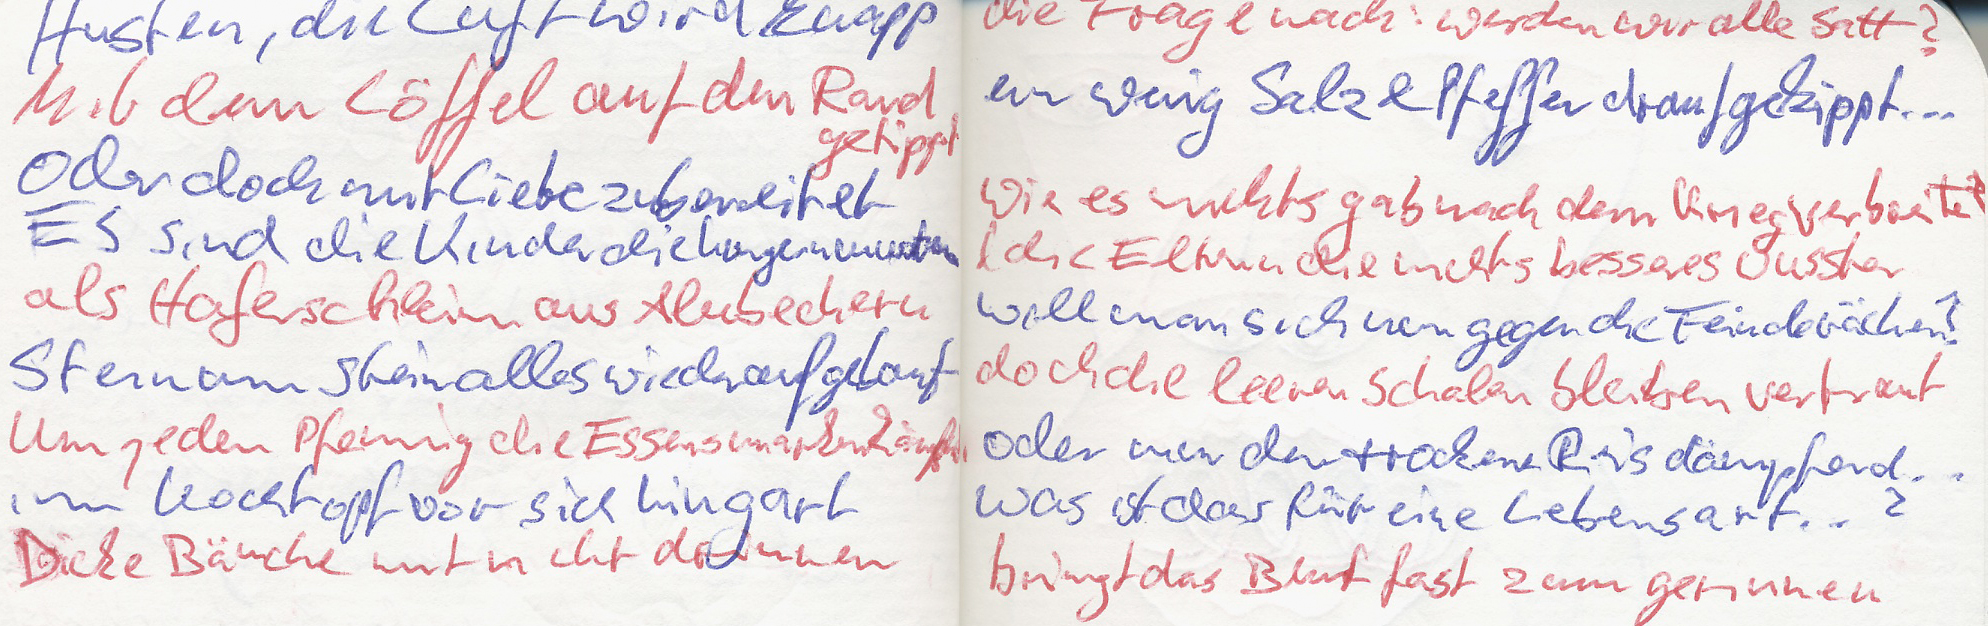 Husten, die Luft wird knapp
Mit dem Löffel auf den Rand
getippt
Oder doch mit Liebe zubereitet
ES sind die Kinder die hungern mussten
als Haferschleim aus Alubechern
Stein um Stein alles wieder aufgebaut
Um jeden Pfennig die Essensmarken
im Kochtopf vor sich hingart
Dicke Bäuche mit nicht drinnen
die Frage nach: werden wir alle satt?
ein wenig Salz & Pfeffer draufgekippt...
Wie es nichts gab nach dem Krieg verbreitet
die Eltern die nichts besseres wussten
will man sich nun gegen die Feinde rächen?
doch die leeren Schalen bleiben vertraut
oder nur den trockenen Reis dämpfend...
Was ist das für eine Lebensart...?
bringt das Blut fast zum gerinnen